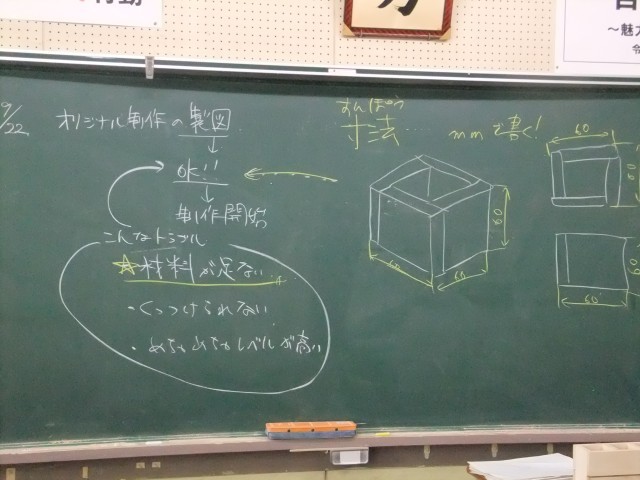 行動
力
〜魅力
9/22
オリジナル制作の製図
↓
OK!!
↓
制作開始
こんなトラブル
☆材料が足りない
・くっつけられない
・めちゃめちゃレベルが高い
すんぽう
寸法
mmで書く!
60
60
60
60
60
60
60